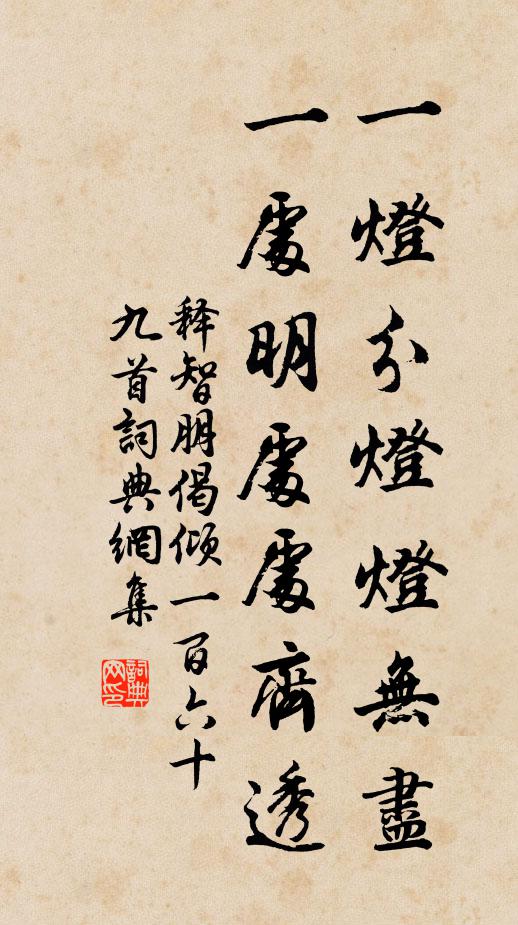 一燈分燈燈無盡
一處明處處齊透
释智朋偈傾一百六十
九首詞典網集
詞典网印